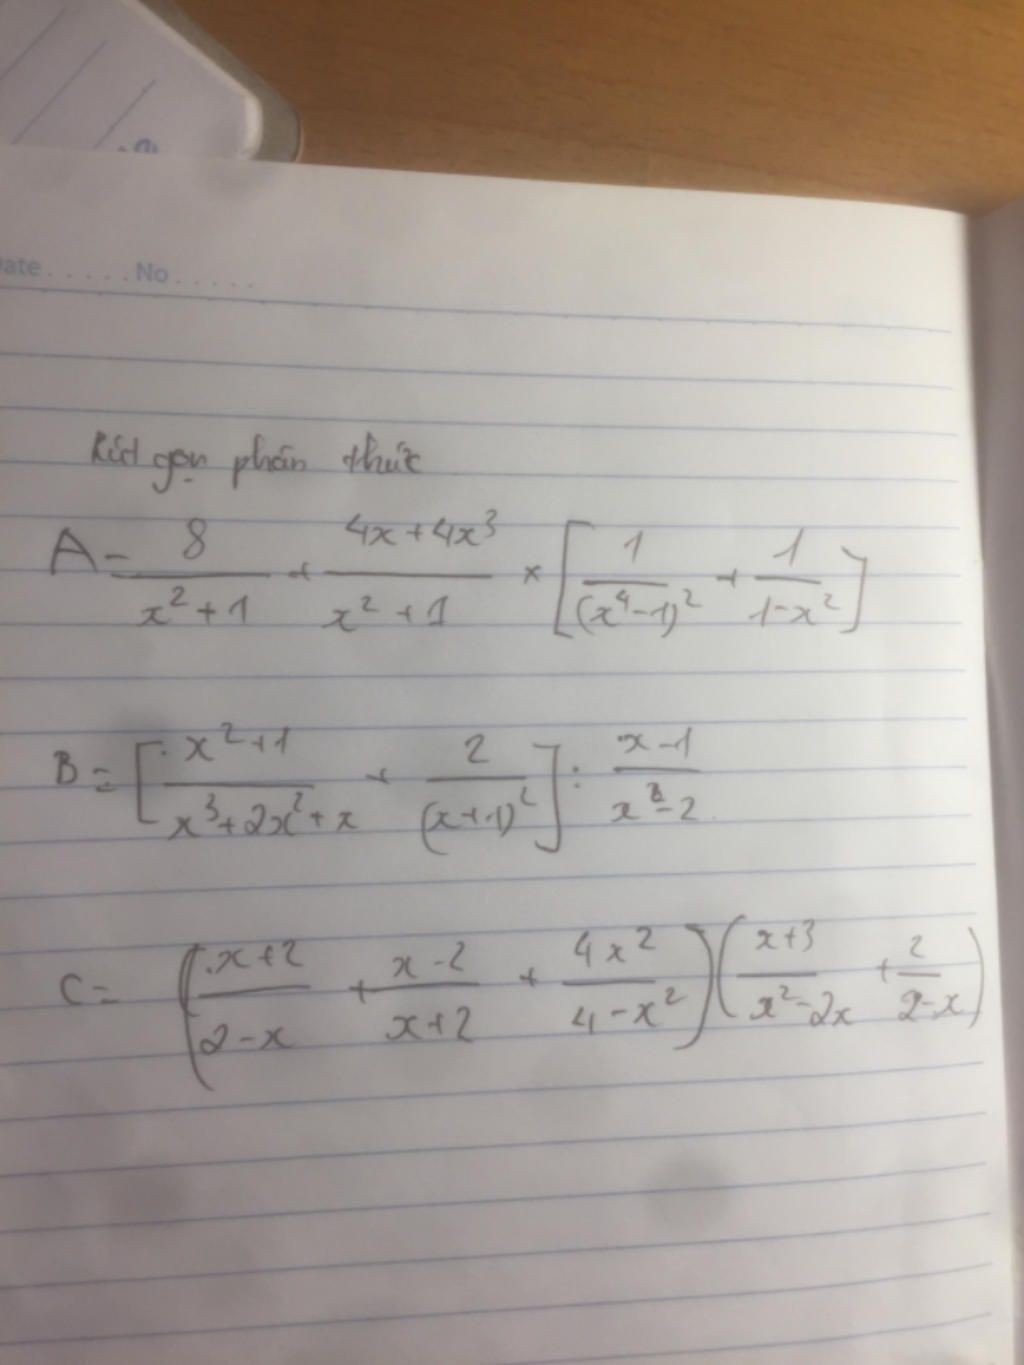 Date ..... No .....
Rút gọn phân thức
A = 8/(x²+1) + (4x+4x³)/(x²+1) × [1/(x⁴-1)² + 1/(1-x²)]
B = [(x²+1)/(x³+2x²+x) + 2/(x+1)²] : (x-1)/(x²-2)
C = ((x+2)/(2-x) + (x-2)/(x+2) + 4x²/(4-x²)) ((x+3)/(x²-2x) + 2/(2-x))